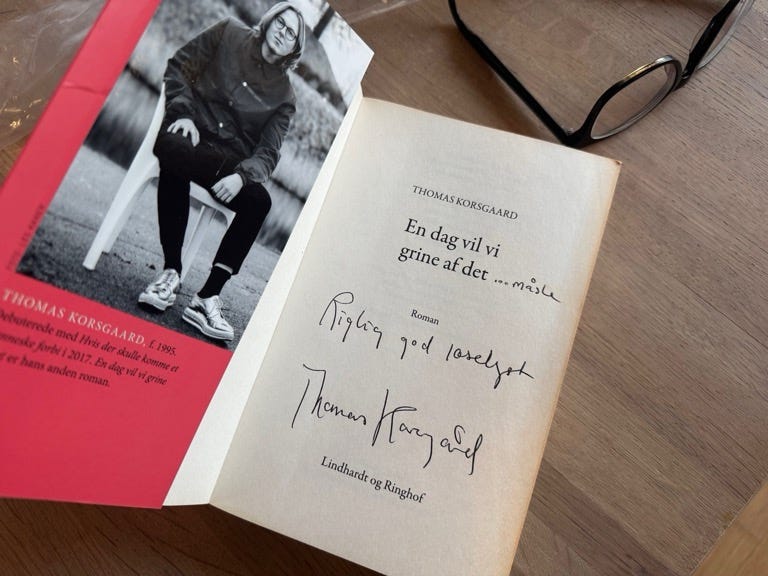 THOMAS KORSGAARD, f. 1995.
debuterede med Hvis der skulle komme et
menneske forbi i 2017. En dag vil vi grine
er hans anden roman.
THOMAS KORSGAARD
En dag vil vi
grine af det ... måske
Roman
Rigtig god læselyst
Thomas Korsgaard
Lindhardt og Ringhof